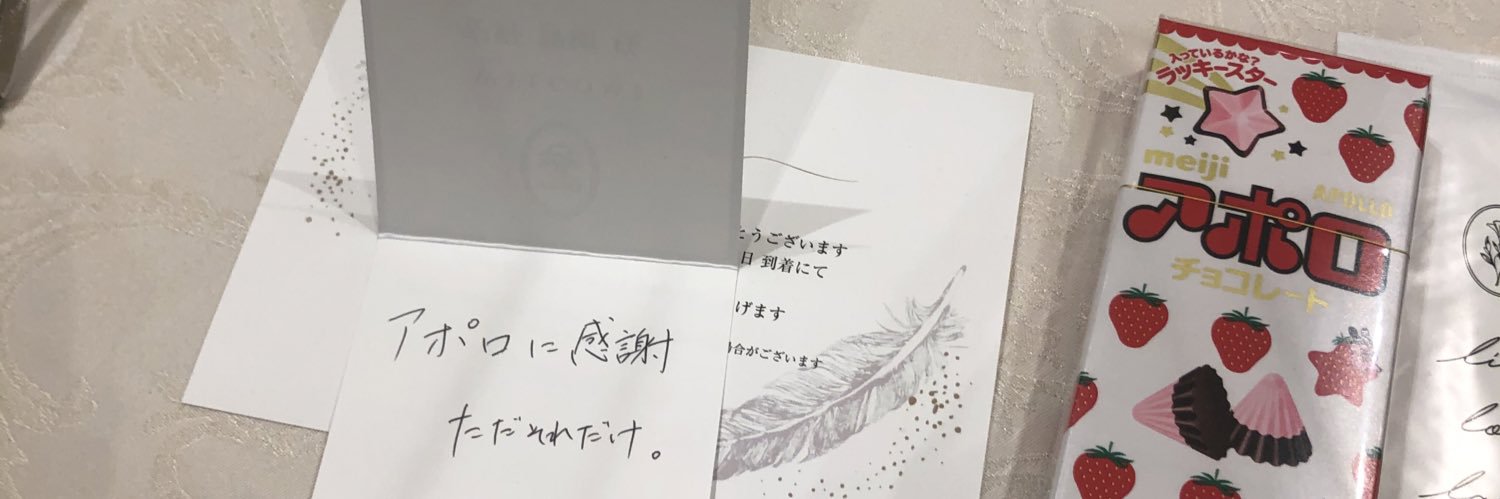 アポロに感謝
ただそれだけ。
とうございます
日 到着にて
げます
場合がございます
入っているかな?
ラッキースター
meiji
アポロ
APOLLO
チョコレート